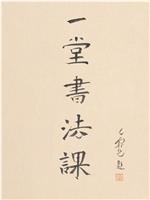 一堂書法課